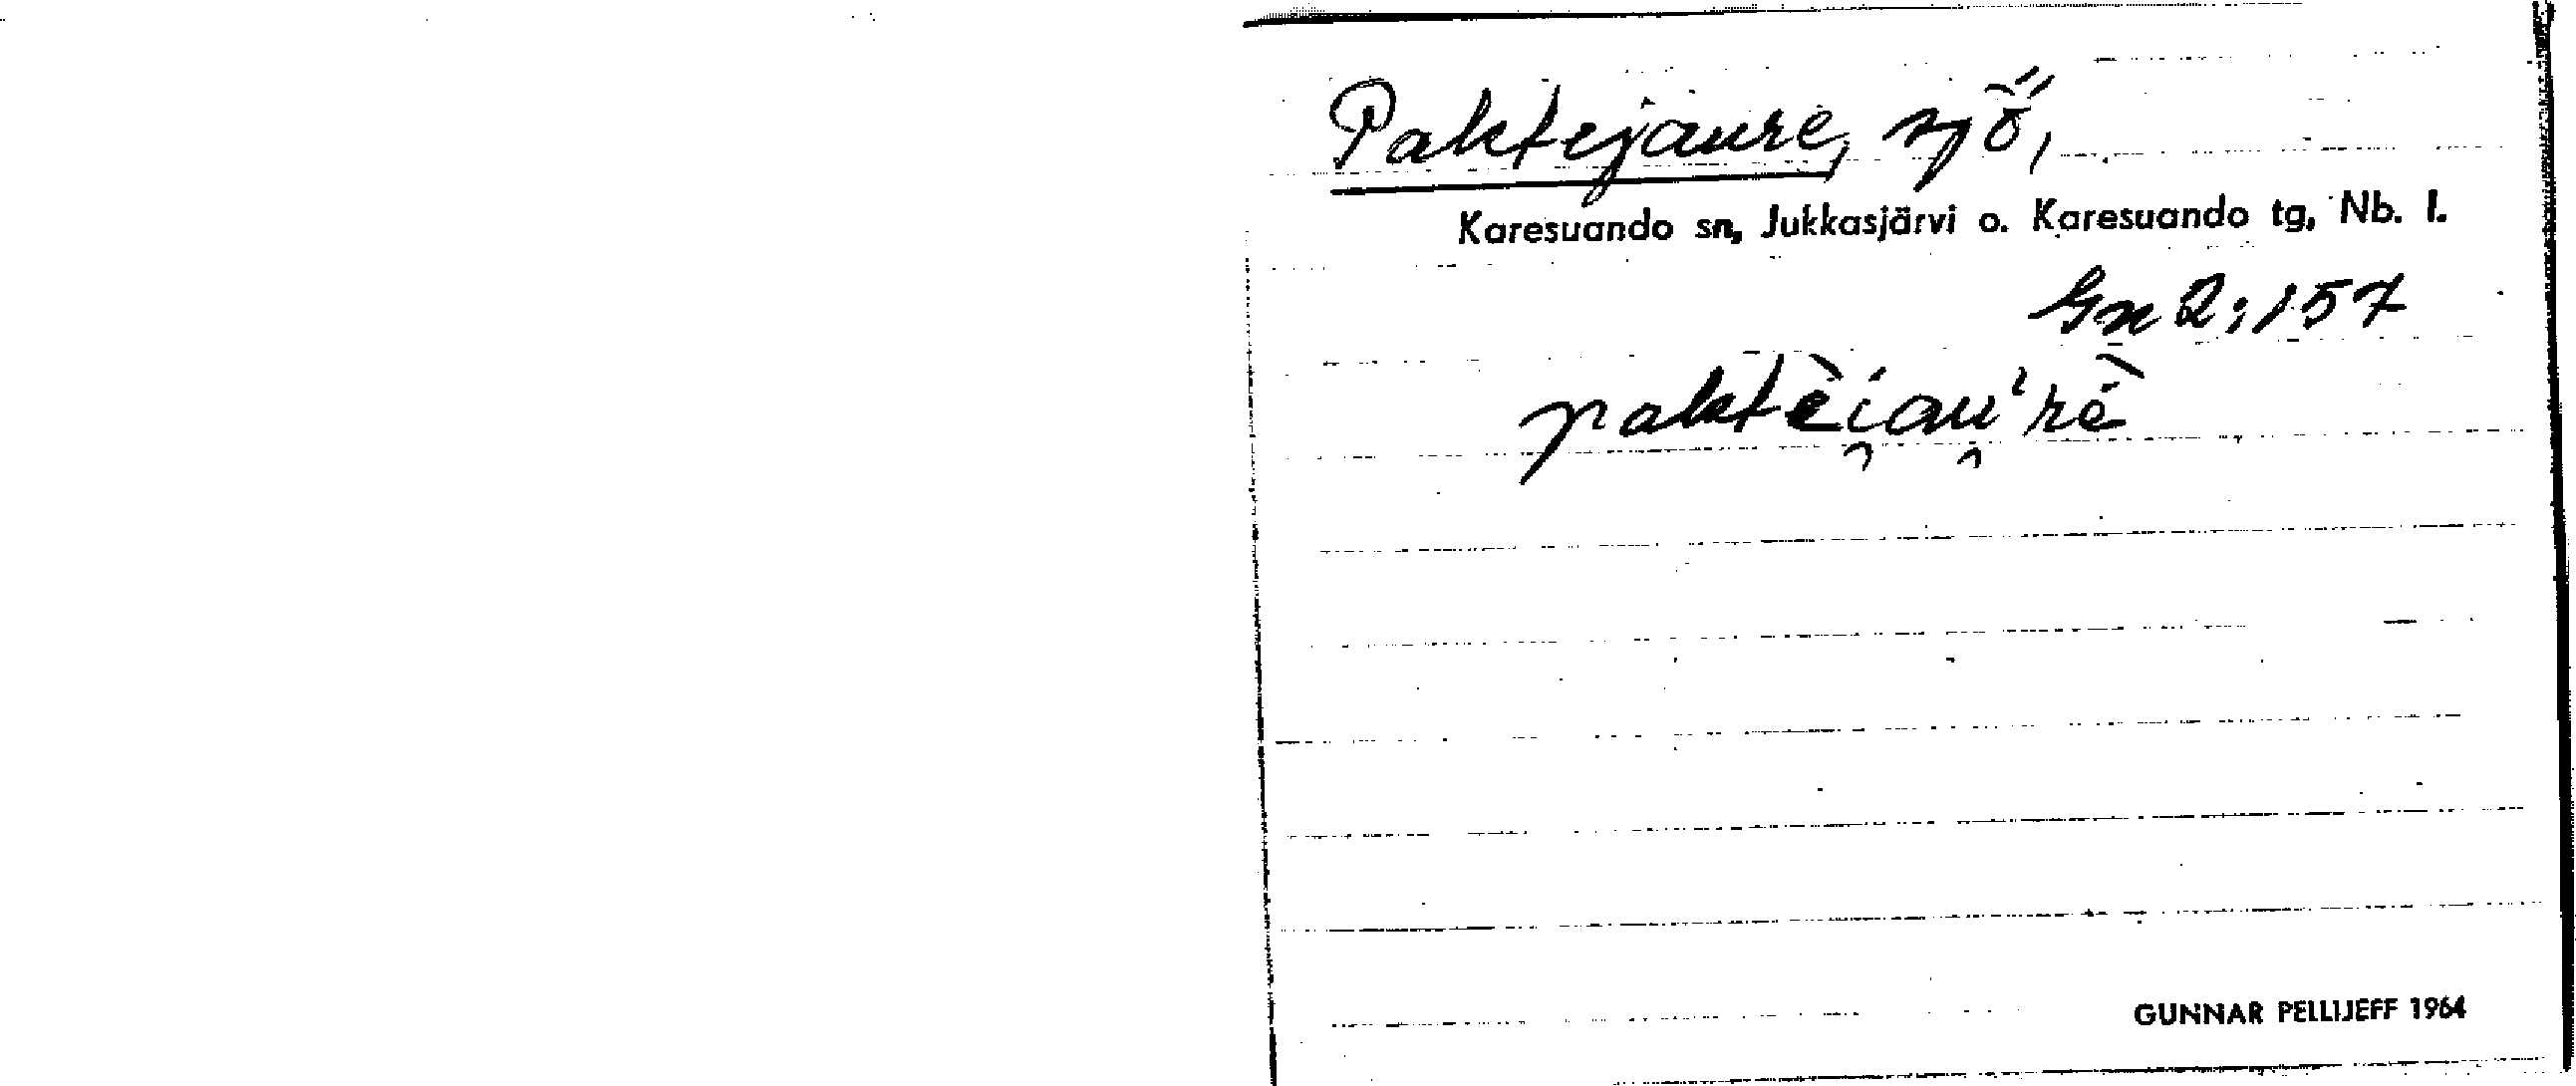 Paktejaure, sjö,
Karesuando sn, Jukkasjärvi o. Karesuando tg, Nb. l.
Gn 2:157
paktèi̯au̯ʹrè
GUNNAR PELLIJEFF 1964